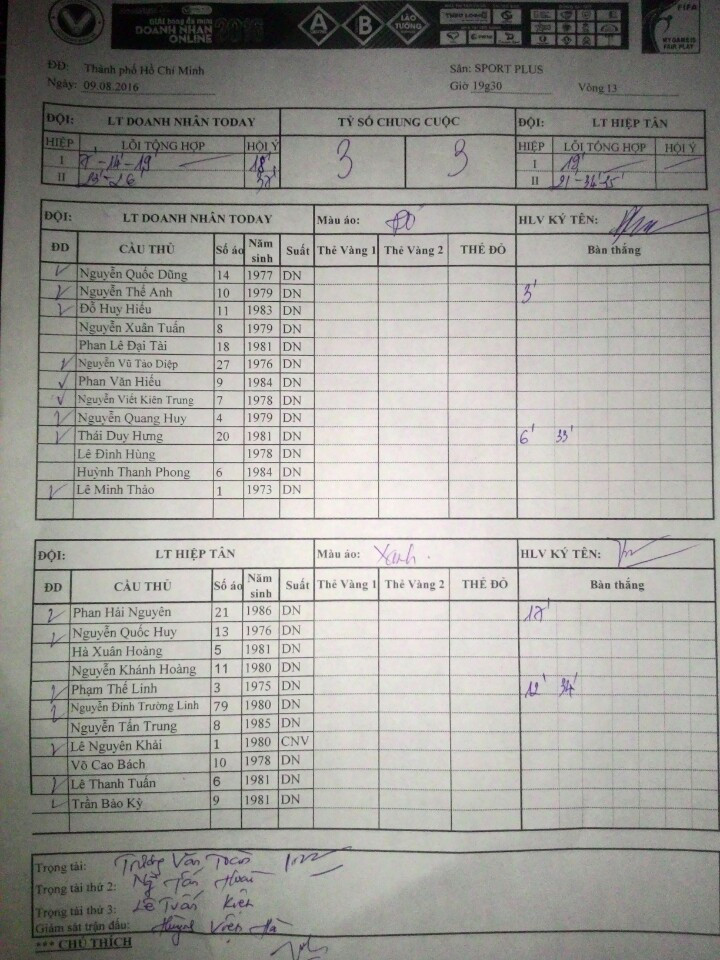 GIẢI bóng đá mini
DOANH NHÂN
ONLINE 2016
A B LÀO TƯỞNG
FIFA
MY GAME IS
FAIR PLAY
ĐĐ: Thành phố Hồ Chí Minh Sân: SPORT PLUS
Ngày: 09.08.2016 Giờ 19g30 Vòng 13
ĐỘI: LT DOANH NHÂN TODAY TỶ SỐ CHUNG CUỘC ĐỘI: LT HIỆP TÂN
HIỆP LỖI TỔNG HỢP HỘI Ý 3 3 HIỆP LỖI TỔNG HỢP HỘI Ý
I 8'-14'-19' 18' I 19'
II 23'-26' II 21'-34'-35'
ĐỘI: LT DOANH NHÂN TODAY Màu áo: Đỏ HLV KÝ TÊN:
ĐD CẦU THỦ Số áo Năm sinh Suất Thẻ Vàng 1 Thẻ Vàng 2 THẺ ĐỎ Bàn thắng
Nguyễn Quốc Dũng 14 1977 DN
Nguyễn Thế Anh 10 1979 DN 3'
Đỗ Huy Hiếu 11 1983 DN
Nguyễn Xuân Tuấn 8 1979 DN
Phan Lê Đại Tài 18 1981 DN
Nguyễn Vũ Tảo Diệp 27 1976 DN
Phan Văn Hiếu 9 1984 DN
Nguyễn Viết Kiên Trung 7 1978 DN
Nguyễn Quang Huy 4 1979 DN
Thái Duy Hưng 20 1981 DN 6' 33'
Lê Đình Hùng 1978 DN
Huỳnh Thanh Phong 6 1984 DN
Lê Minh Thảo 1 1973 DN
ĐỘI: LT HIỆP TÂN Màu áo: Xanh. HLV KÝ TÊN:
ĐD CẦU THỦ Số áo Năm sinh Suất Thẻ Vàng 1 Thẻ Vàng 2 THẺ ĐỎ Bàn thắng
Phan Hải Nguyên 21 1986 DN 17'
Nguyễn Quốc Huy 13 1976 DN
Hà Xuân Hoàng 5 1981 DN
Nguyễn Khánh Hoàng 11 1980 DN
Phạm Thế Linh 3 1975 DN 12' 34'
Nguyễn Đình Trường Linh 79 1980 DN
Nguyễn Tấn Trung 8 1985 DN
Lê Nguyên Khải 1 1980 CNV
Võ Cao Bách 10 1978 DN
Lê Thanh Tuấn 6 1981 DN
Trần Bảo Kỳ 9 1981 DN
Trọng tài: Trương Văn Toàn
Trọng tài thứ 2: Ng Tấn
Trọng tài thứ 3: Lê Tuấn Kiên
Giám sát trận đấu: Huỳnh Viện Hà
*** CHÚ THÍCH